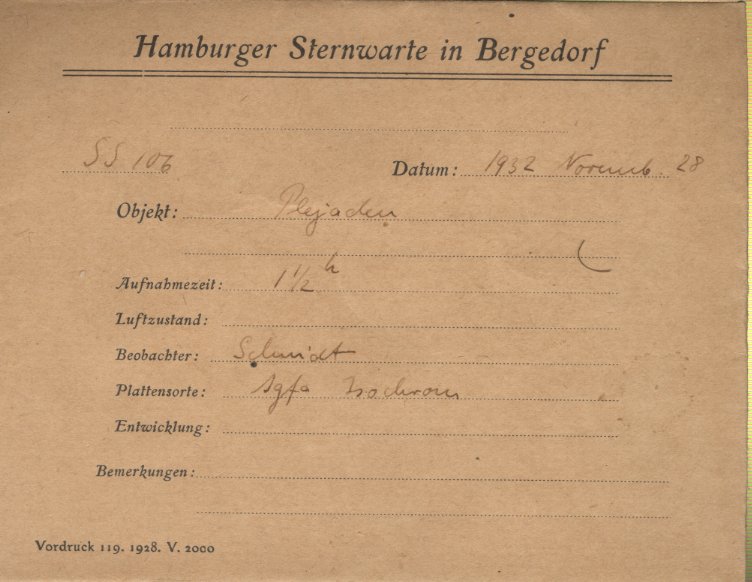 Hamburger Sternwarte in Bergedorf
SS 106 Datum: 1932 Novemb. 28
Objekt: Plejaden
Aufnahmezeit: 1 1/2 h
Luftzustand:
Beobachter: Schmidt
Plattensorte: Agfa Isochrom
Entwicklung:
Bemerkungen:
Vordruck 119. 1928. V. 2000